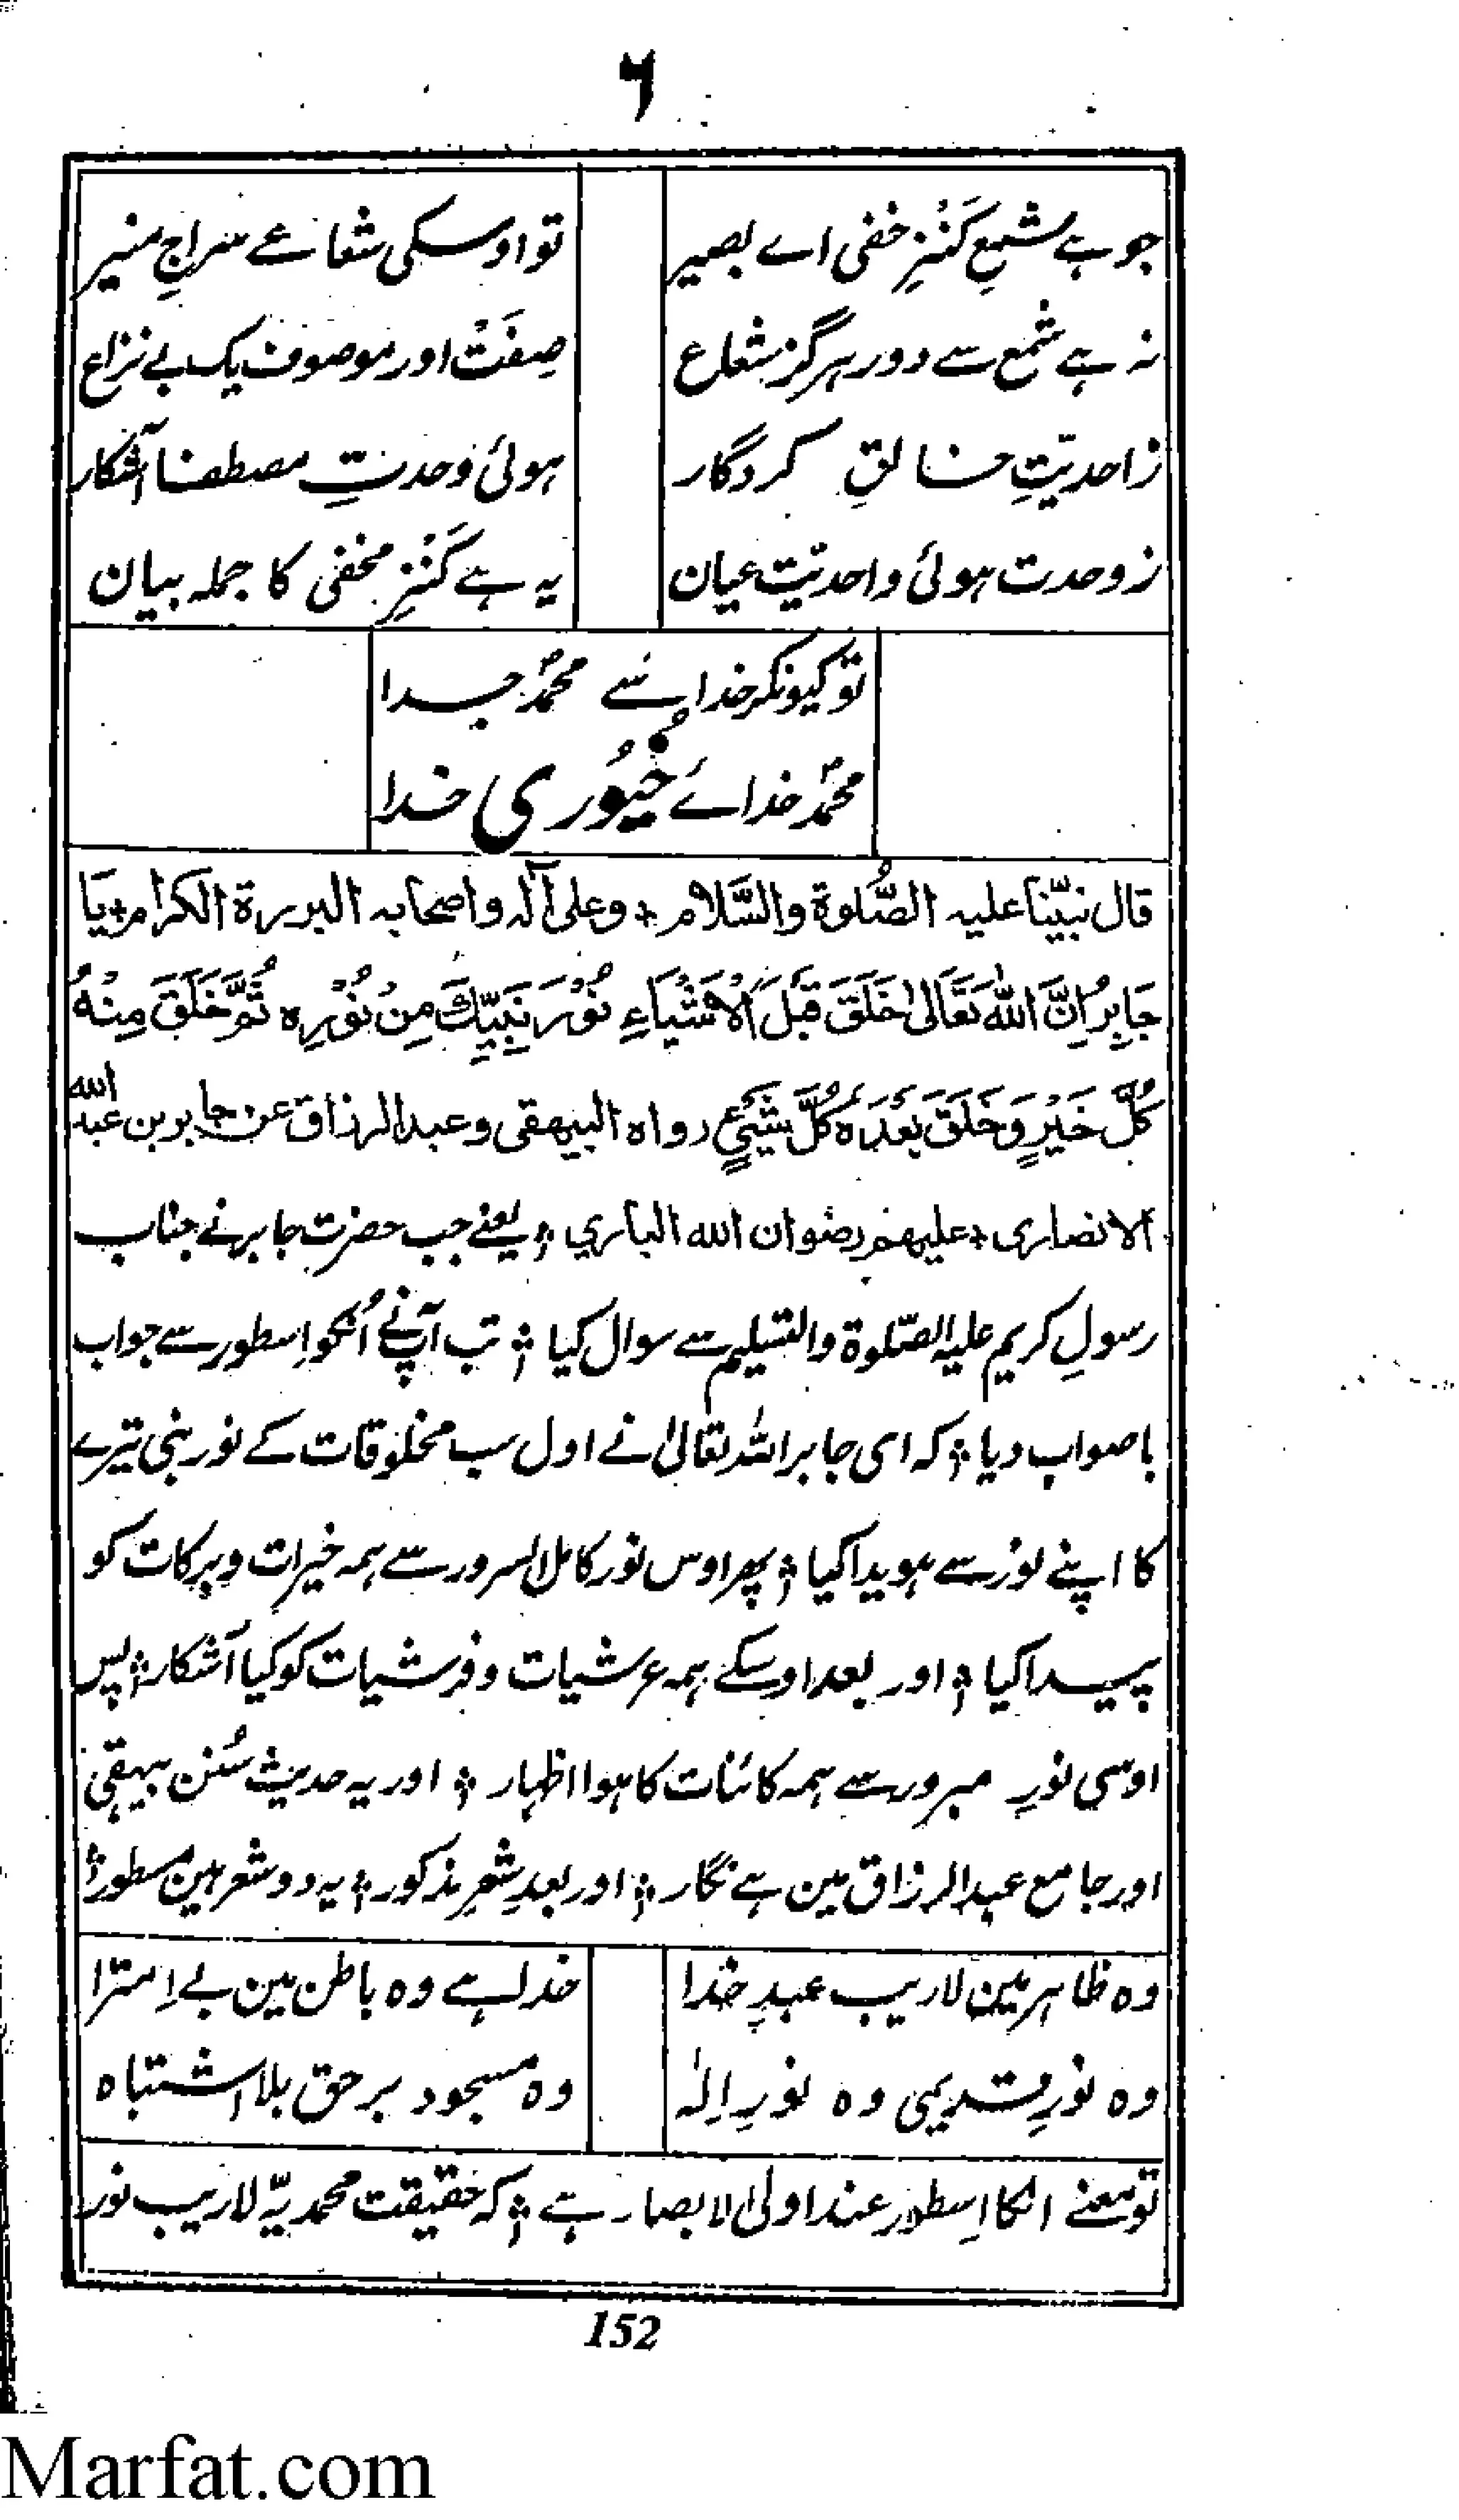 ۶
جو ہے شمعِ کَنْزِ خفی اے بصیر
تو اوسکی شعاعے سراجِ منیر
نہ ہے شمع سے دور ہرگز شعاع
صِفَتْ اور موصوف یک بے نزاع
ز احدیّتِ خالقِ کردگار
ہوئی وحدتِ مصطفےٰ آشکار
ز وحدت ہوئی واحدیّت عیان
یہ ہے کَنْزِ مخفی کا جملہ بیان
تو کیونکر خدا سے محمدؐ جدا
محمدؐ خدائے خُیُوری خدا
قال نبیّنا علیہ الصّلوۃ والسّلام ؞ وعلی آلہ واصحابہ البررۃ الکرام ؞ یَا
جَابِرُ اِنَّ اللّٰهَ تَعَالٰی خَلَقَ قَبْلَ الْاَشْیَاءِ نُوْرَ نَبِیِّكَ مِنْ نُوْرِهٖ ثُمَّ خَلَقَ مِنْهُ
كُلَّ خَیْرٍ وَخَلَقَ بَعْدَهٗ كُلَّ شَیْیءٍ رواہ البیهقی وعبدالرزاق عن جابر بن عبد اللہ
الانصاری ؞ علیهم رضوان الله الباري ؞ یعنے جب حضرت جابر نے جناب
رسولِ کریم علیہ الصّلوۃ والتسلیم سے سوال کیا ؞ تب آپنے اُنکو اِسطور سے جواب
باصواب دیا ؞ کہ ای جابر اللہ تعالیٰ نے اول سب مخلوقات کے نور نبی تیرے
کا اپنے نور سے ہویدا کیا ؞ پھر اوس نور کامل السرور سے ہمہ خیرات و برکات کو
پیدا کیا ؞ اور بعد اوسکے ہمہ عرشیات و فرشیات کو کیا آشکار ؞ پس
اوسی نورِ سرور سے ہمہ کائنات کا ہوا اظہار ؞ اور یہ حدیث سُنن بیہقی
اور جامع عبدالرزاق مین ہے نگار ؞ اور بعدِ شعرِ مذکور ؞ یہ دو شعر ہین مسطور ؞
وہ ظاہر مین لاریب عبدِ خدا
خدا ہے وہ باطن مین بے اِمترا
وہ نورِ قدیمی وہ نورِ اِلٰہ
وہ مسجود برحق بلا اشتباہ
تو معنے انکا اِسطور عند اولی الابصار ہے ؞ کہ حقیقت محمدیّہ لاریب نور
152
Marfat.com